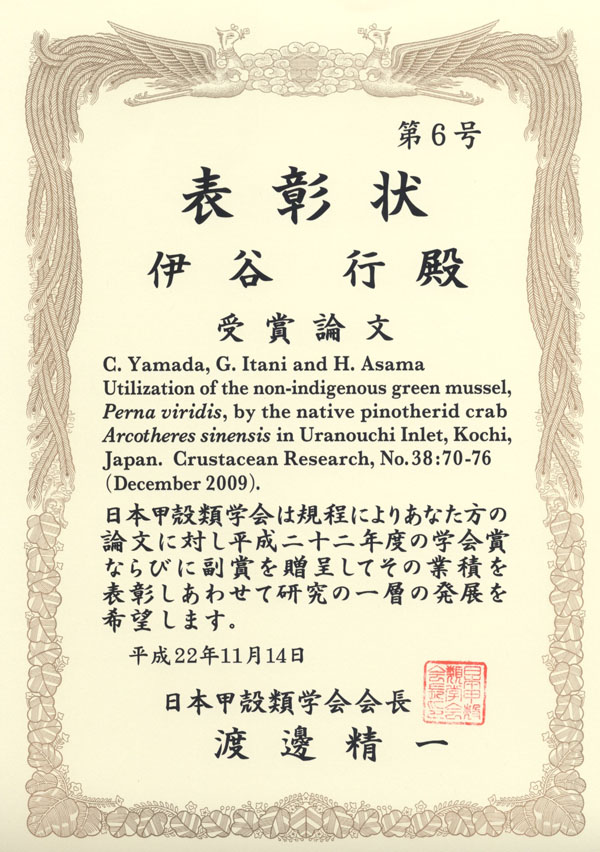 第6号
表彰状
伊谷 行殿
受賞論文
C. Yamada, G. Itani and H. Asama
Utilization of the non-indigenous green mussel,
Perna viridis, by the native pinotherid crab
Arcotheres sinensis in Uranouchi Inlet, Kochi,
Japan. Crustacean Research, No.38:70-76
(December 2009).
日本甲殻類学会は規程によりあなた方の
論文に対し平成二十二年度の学会賞
ならびに副賞を贈呈してその業積を
表彰しあわせて研究の一層の発展を
希望します。
平成22年11月14日
日本甲殻類学会会長
渡邊精一
日本甲殻
類学会
会長之印